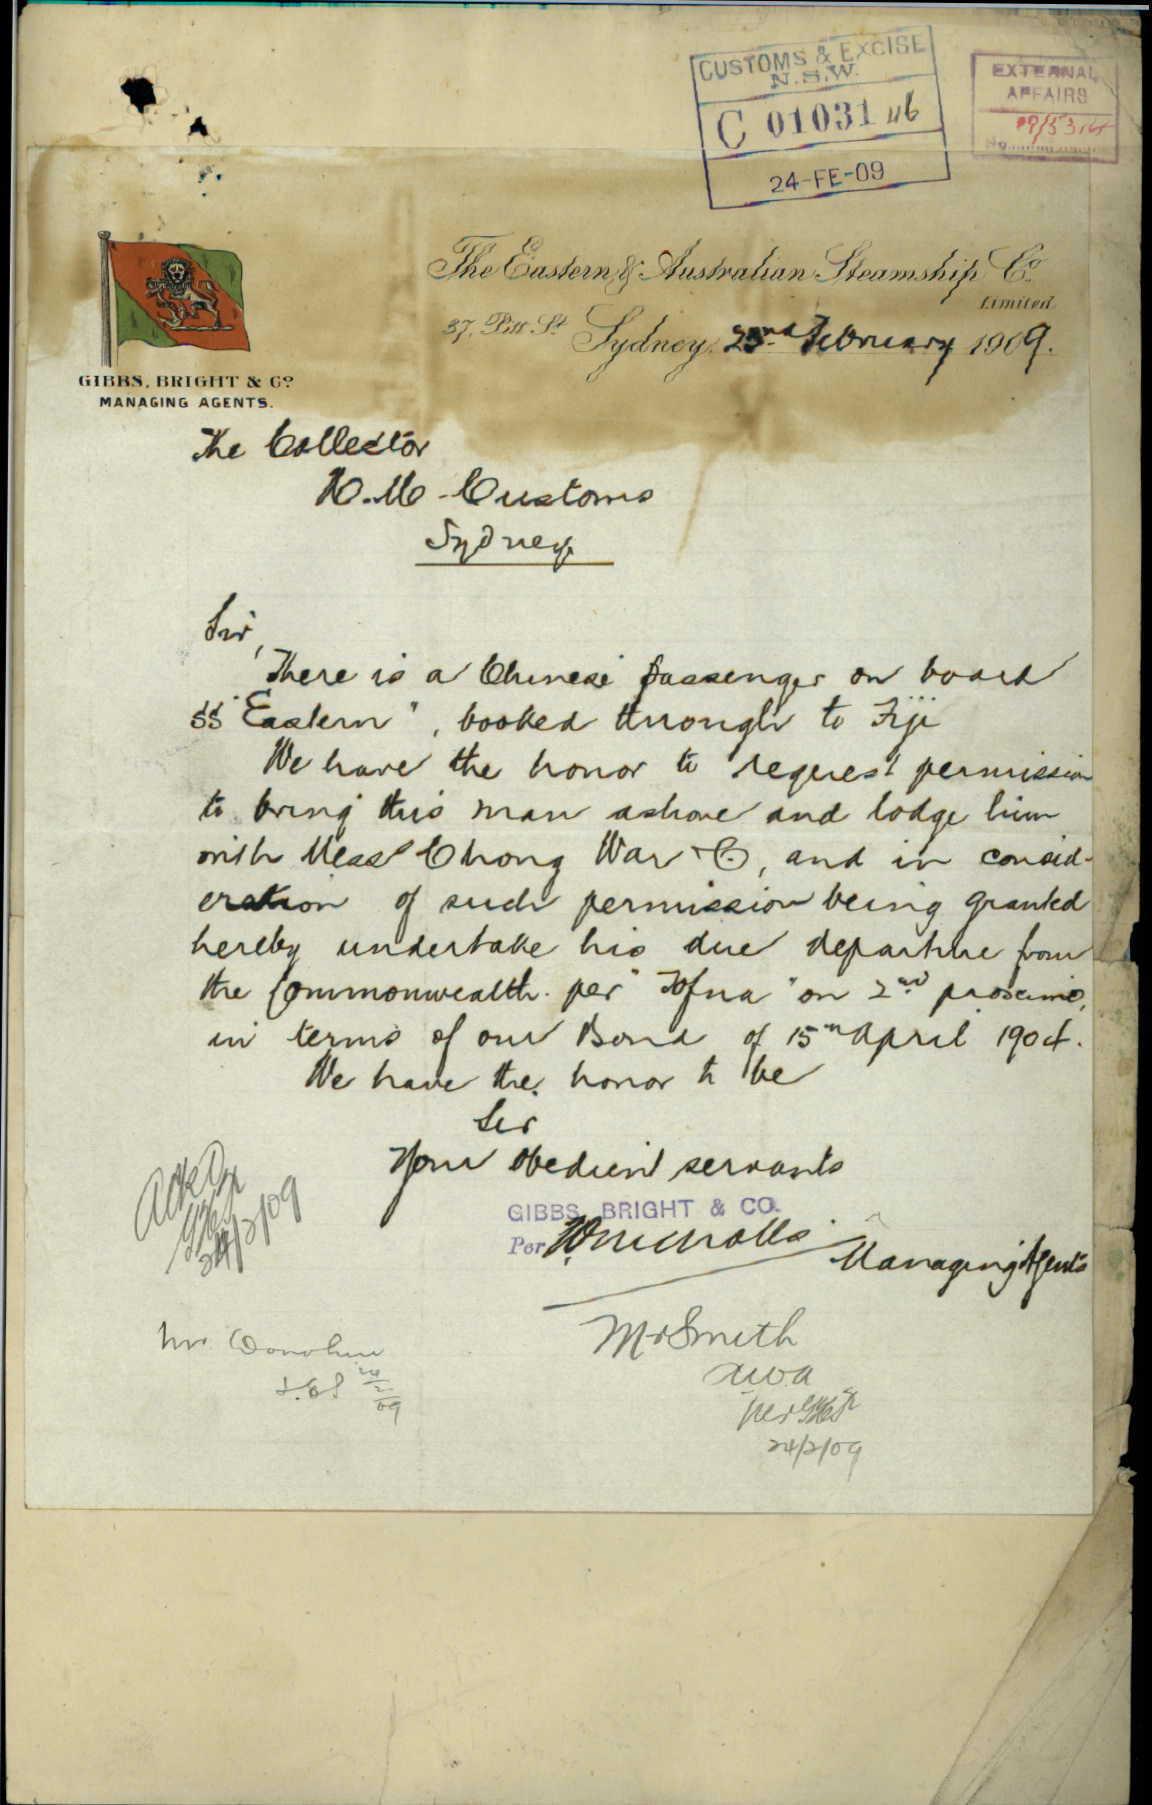 CUSTOMS & EXCISE
N.S.W.
C 01031 46
24-FE-09
EXTERNAL
AFFAIRS
No
The Eastern & Australian Steamship Co.
Limited
37, Pitt St. Sydney, 23rd February 1909.
GIBBS, BRIGHT & Co.
MANAGING AGENTS.
The Collector
H.M. Customs
Sydney
Sir,
There is a Chinese passenger on board
SS "Eastern", booked through to Fiji
We have the honor to request permission
to bring this man ashore and lodge him
with Mess Chong War & Co, and in consid-
eration of such permission being granted
hereby undertake his due departure from
the Commonwealth per "Tofua" on 2nd proximo,
in terms of our Bond of 15th April 1904.
We have the honor to be
Sir
Your obedient servants
GIBBS, BRIGHT & CO.
Per Managing Agents
24/2/09
Mr Donohue
24/2/09
Mr Smith
per
24/2/09